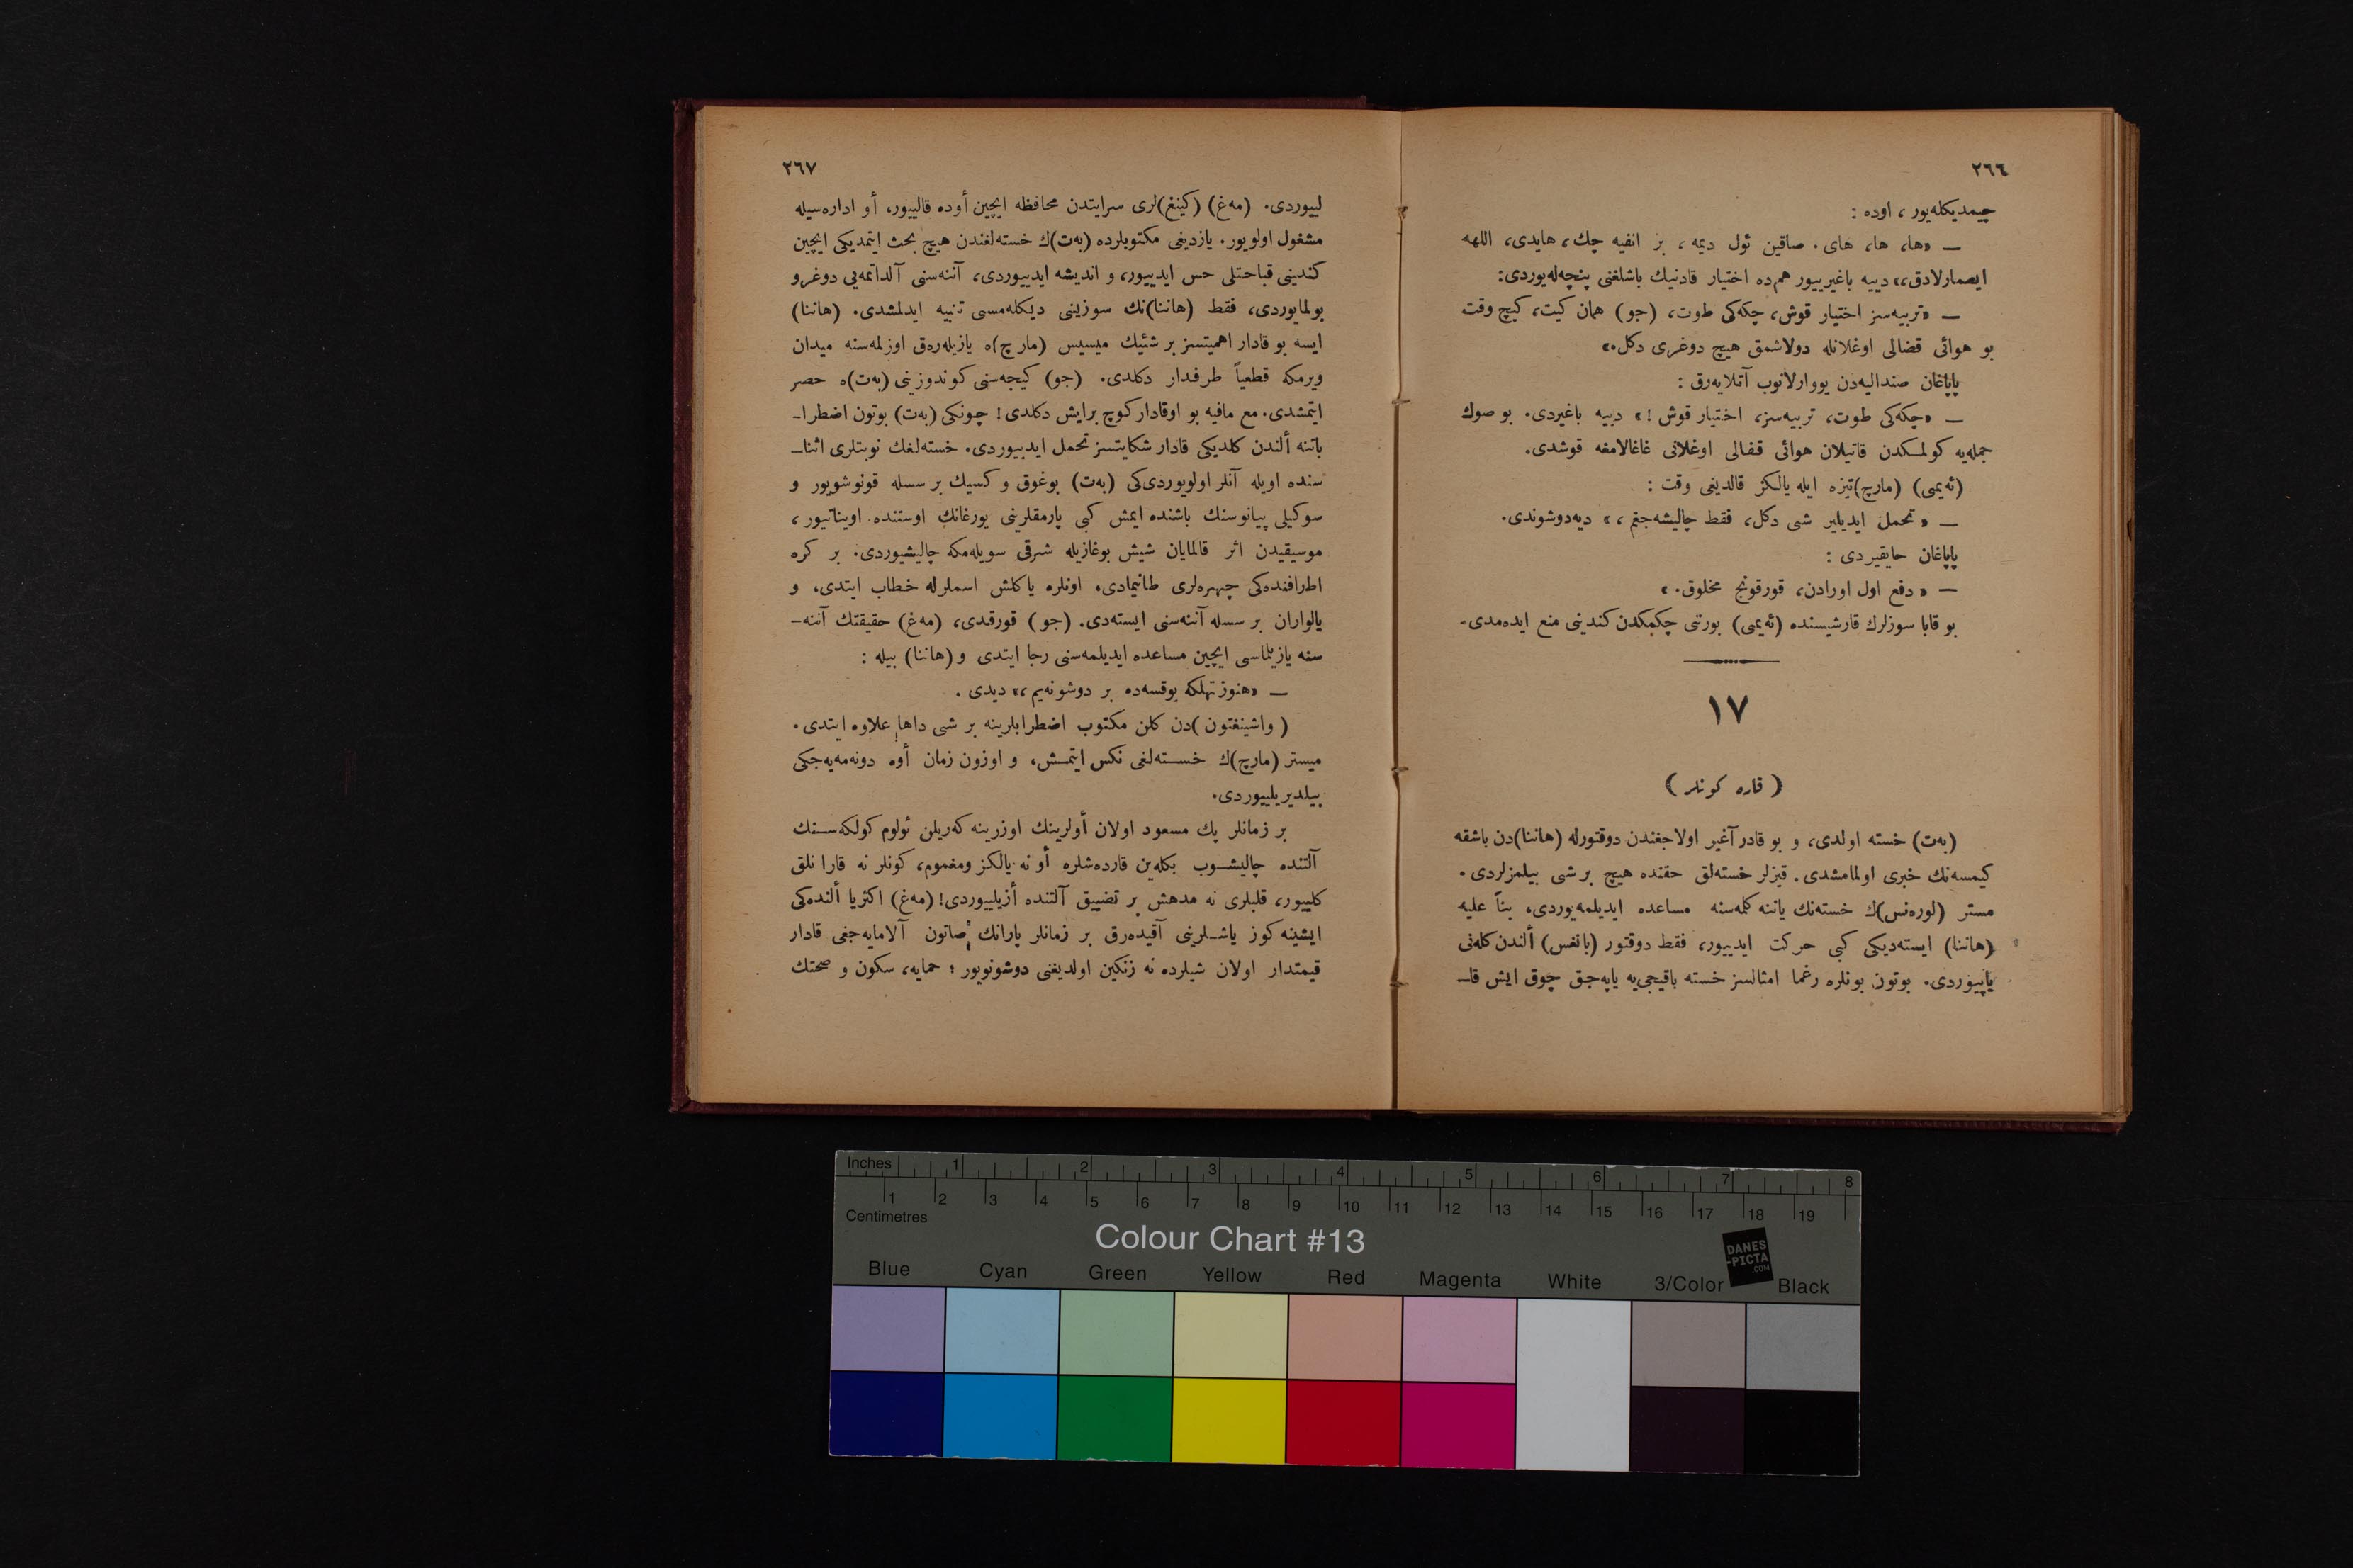 ٢٦٦
چیمدیکله‌یور ، اوده :
— «ها، ها، های. صاقین ئول دیمه ، بر انفیه چك ، هایدی، اللهه
ایصمارلادق،» دییه باغیرییور هم‌ده اختیار قادنیك باشلغنی پنچه‌له‌یوردی:
— «تربیه‌سز اختیار قوش، چكه‌كی طوت، (جو) همان كیت، كیچ وقت
بو هوائی قضالی اوغلانله دولاشمق هیچ دوغری دكل.»
پاپاغان صندالیه‌دن یووارلانوب آتلایه‌رق :
— «چكه‌كی طوت، تربیه‌سز، اختیار قوش !» دییه باغیردی. بو صوك
جمله‌یه كولمكدن قاتیلان هوائی قفالی اوغلانی غاغالامغه قوشدی.
(ئه‌یمی) (مارچ)تیزه ایله یالكز قالدیغی وقت :
— « تحمل ایدیلیر شی دكل، فقط چالیشه‌جغم ، » دیه‌دوشوندی.
پاپاغان حایقیردی :
— « دفع اول اورادن، قورقونج مخلوق. »
بو قابا سوزلرك قارشیسنده (ئه‌یمی) بورتی چكمكدن كندینی منع ایده‌مدی.
١٧
( قاره كونلر )
(به‌ت) خسته اولدی، و بو قادر آغیر اولاجغندن دوقتورله (هاننا)دن باشقه
كیمسه‌نك خبری اولمامشدی. قیزلر خسته‌لق حقنده هیچ بر شی بیلمزلردی.
مستر (لوره‌نس)ك خسته‌نك یاننه كلمه‌سنه مساعده ایدیلمه‌یوردی، بناً علیه
(هاننا) ایسته‌دیكی كبی حركت ایدییور، فقط دوقتور (بانغس) ألندن كله‌نی
یاپییوردی. بوتون بونلره رغما امثالسز خسته باقیجی‌یه یاپه‌جق چوق ایش قا-
٢٦٧
لییوردی. (مه‌غ) (كینغ)لری سرایتدن محافظه ایچین أوده قالییور، أو اداره‌سیله
مشغول اولویور. یازدیغی مكتوبلرده (به‌ت)ك خسته‌لغندن هیچ بحث ایتمدیكی ایچین
كندینی قباحتلی حس ایدییور، و اندیشه ایدییوردی، آننه‌سنی آلداتمه‌یی دوغرو
بولمایوردی، فقط (هاننا)نك سوزینی دیكله‌مسی تنبیه ایدلمشدی. (هاننا)
ایسه بو قادار اهمیتسز بر شئیك میسیس (مارچ)ه یازیله‌ره‌ق اوزلمه‌سنه میدان
ویرمكه قطعیاً طرفدار دكلدی. (جو) كیجه‌سنی كوندوزینی (به‌ت)ه حصر
ایتمشدی. مع مافیه بو اوقادار كوچ بر ایش دكلدی! چونكی (به‌ت) بوتون اضطرا-
باتنه ألندن كلدیكی قادار شكایتسز تحمل ایدییوردی. خسته‌لغك نوبتلری اثنا-
سنده اویله آنلر اولویوردی‌كی (به‌ت) بوغوق و كسیك بر سسله قونوشویور و
سوكیلی پیانوسنك باشنده ایمش كبی پارمقلرینی یورغانك اوستنده اویناتیور ،
موسیقیدن اثر قالمایان شیش بوغازیله شرقی سویله‌مكه چالیشییوردی. بر كره
اطرافنده‌كی چهره‌لری طانیمادی. اونلره یاكلش اسملرله خطاب ایتدی، و
یالواران بر سسله آننه‌سنی ایسته‌دی. (جو) قورقدی، (مه‌غ) حقیقتك آننه-
سنه یازیلماسی ایچین مساعده ایدیلمه‌سنی رجا ایتدی و (هاننا) بیله :
— «هنوز تهلكه یوقسه‌ده بر دوشونه‌یم،» دیدی .
( واشینغتون )دن كلن مكتوب اضطرابلرینه بر شی داها علاوه ایتدی.
میستر (مارچ)ك خسته‌لغی نكس ایتمش، و اوزون زمان أوه دونه‌مه‌یه‌جكی
بیلدیریلییوردی.
بر زمانلر پك مسعود اولان أولرینك اوزرینه كه‌ریلن ئولوم كولكه‌سنك
آلتنده چالیشوب بكله‌ین قارده‌شلره أو نه یالكز ومغموم، كونلر نه قارانلق
كلییور، قلبلری نه مدهش بر تضییق آلتنده أزیلییوردی! (مه‌غ) اكثریا ألنده‌كی
ایشینه كوز یاشلرینی آقیده‌رق بر زمانلر پارانك صاتون آلامایه‌جغی قادار
قیمتدار اولان شیلرده نه زنكین اولدیغنی دوشونویور ؛ حمایه، سكون و صحتك
Inches 1 2 3 4 5 6 7 8
1 2 3 4 5 6 7 8 9 10 11 12 13 14 15 16 17 18 19
Centimetres
Colour Chart #13
DANES
-PICTA
.COM
Blue Cyan Green Yellow Red Magenta White 3/Color Black